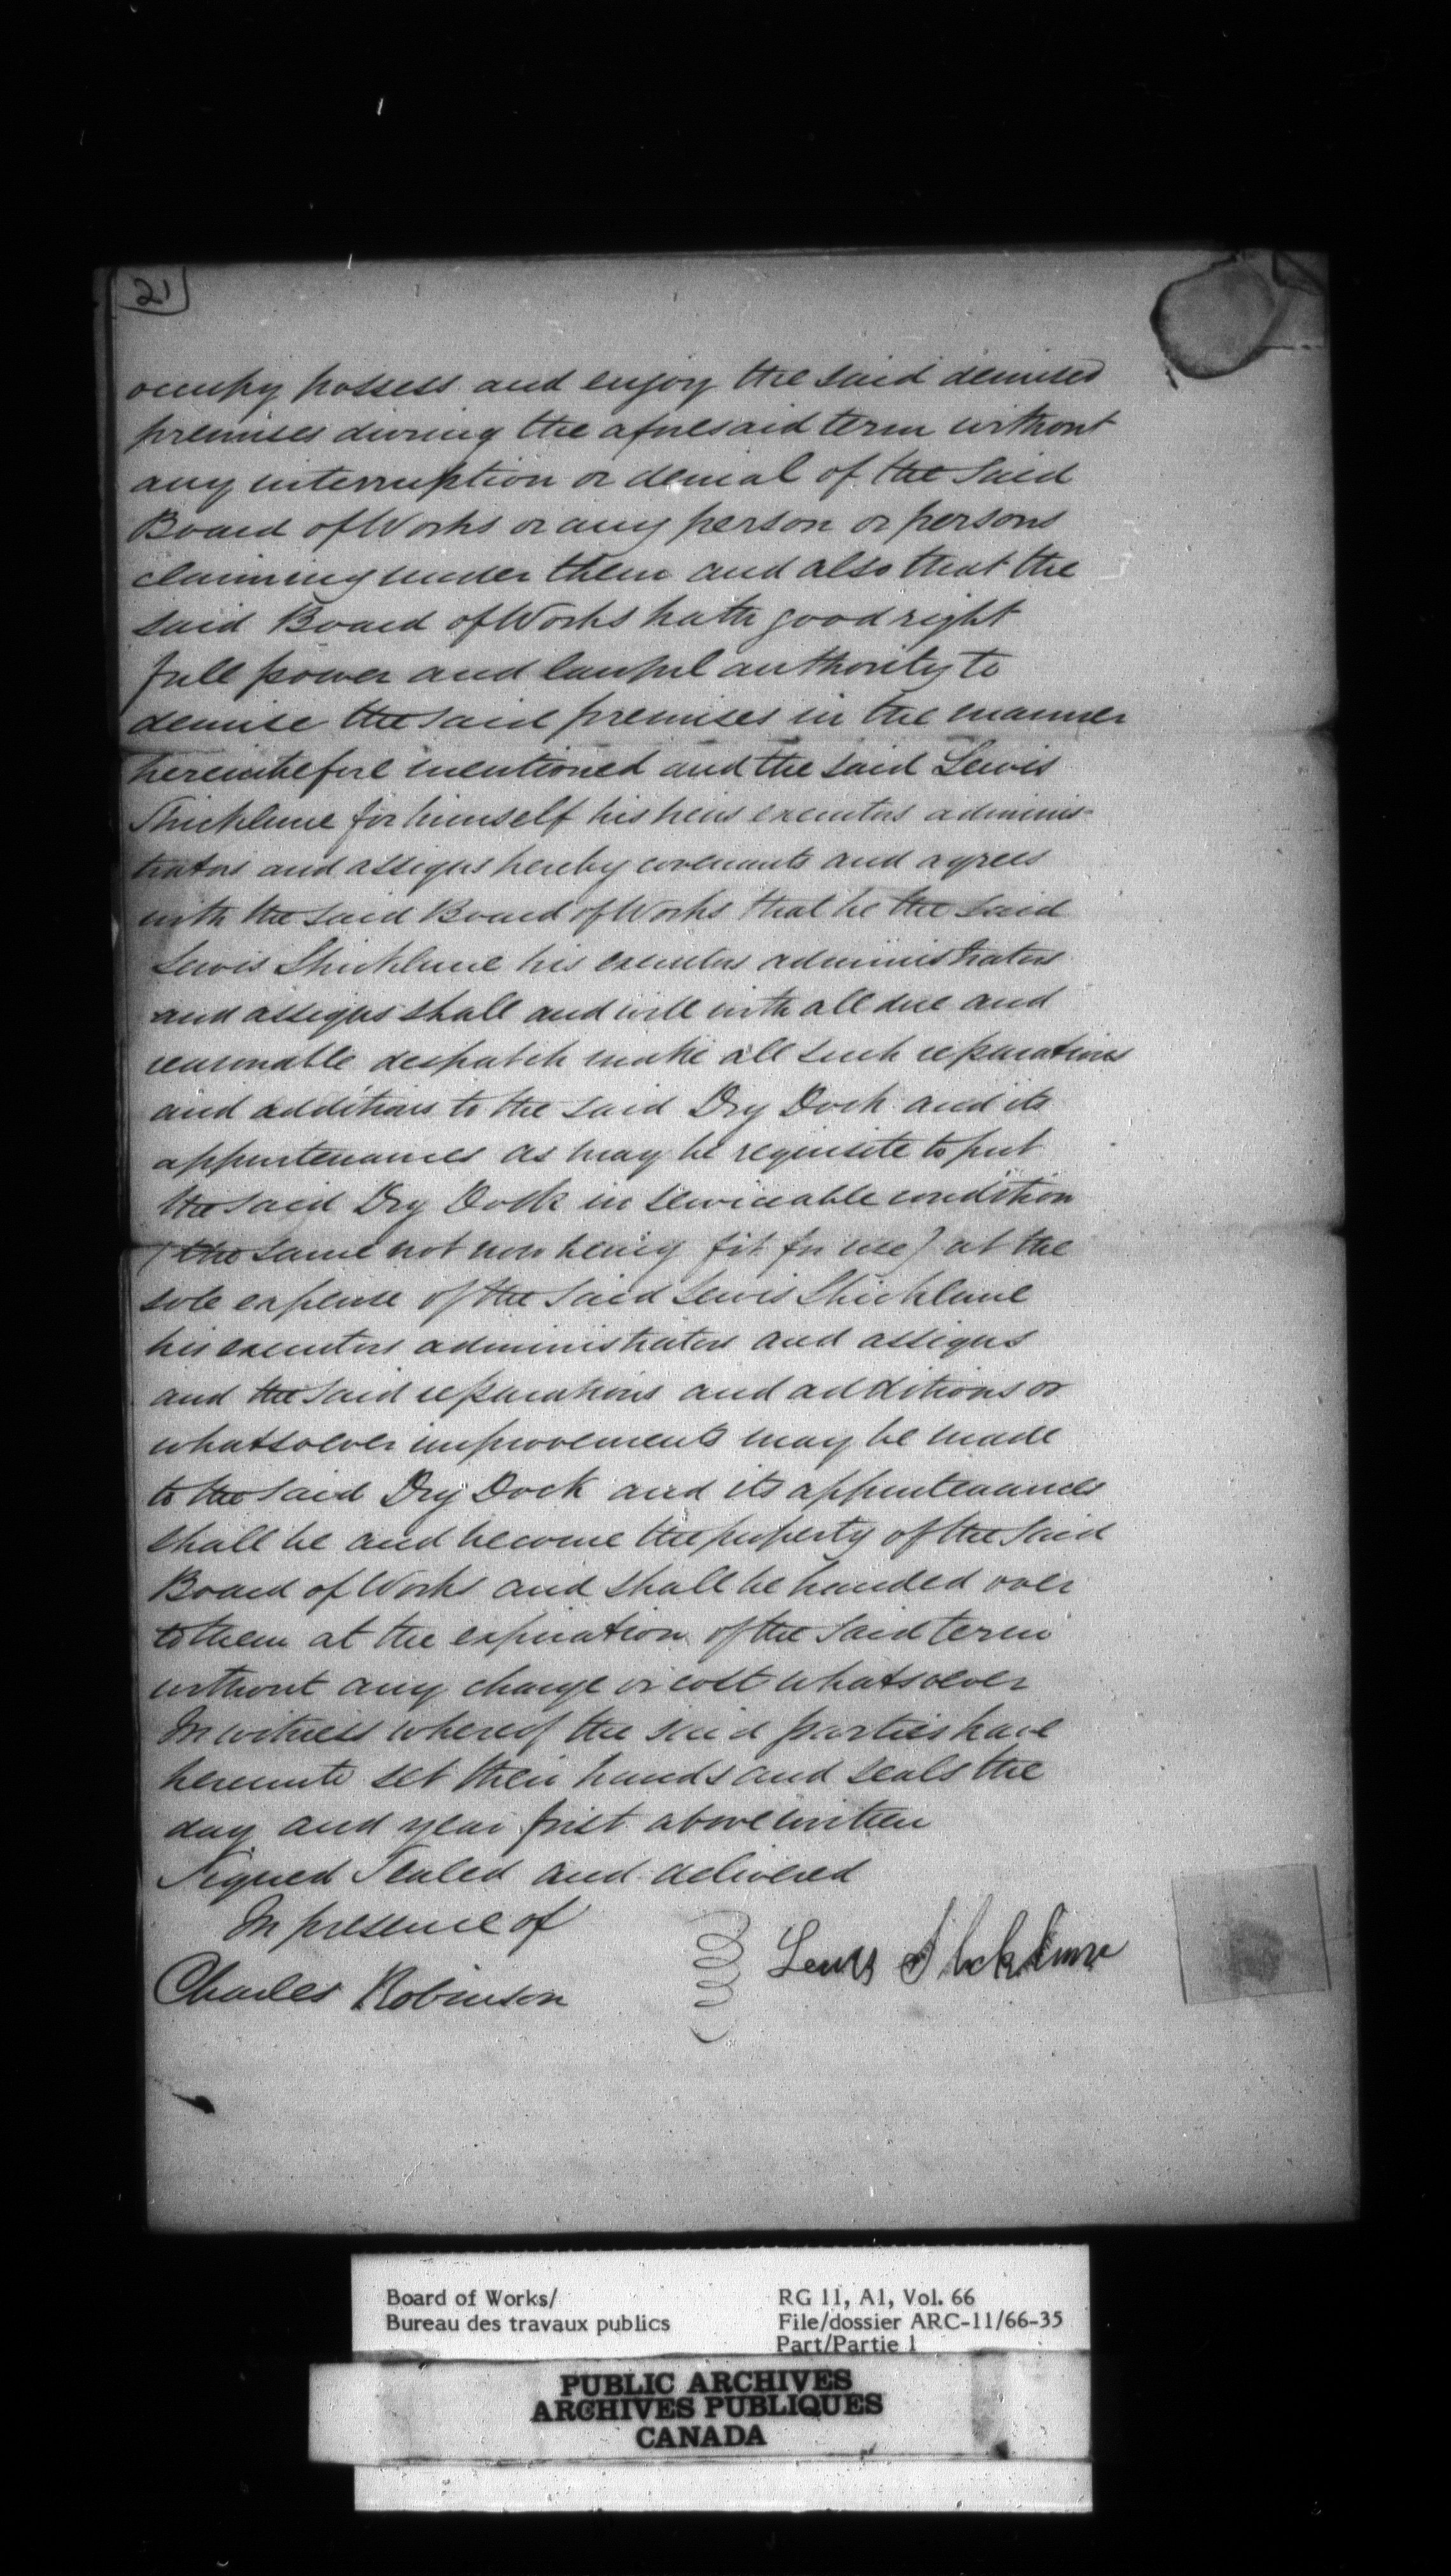 21
occupy possess and enjoy the said demised
premises during the aforesaid term without
any interruption or denial of the said
Board of Works or any person or persons
claiming under them and also that the
said Board of Works hath good right
full power and lawful authority to
demise the said premises in the manner
hereinbefore mentioned and the said Lewis
Shickluna for himself his heirs executors adminis-
trators and assigns hereby covenants and agrees
with the said Board of Works that he the said
Lewis Shickluna his executors administrators
and assigns shall and will with all due and
reasonable despatch make all such reparations
and additions to the said Dry Dock and its
appurtenances as may be requisite to put
the said Dry Dock in serviceable condition
(the same not now being fit for use) at the
sole expense of the said Lewis Shickluna
his executors administrators and assigns
and the said reparations and additions or
whatsoever improvements may be made
to the said Dry Dock and its appurtenances
shall be and become the property of the said
Board of Works and shall be handed over
to them at the expiration of the said term
without any charge or cost whatsoever
In witness whereof the said parties have
hereunto set their hands and seals the
day and year first above written
Signed Sealed and delivered
In presence of
Charles Robinson
Lewis Shickluna
Board of Works/
Bureau des travaux publics
RG 11, A1, Vol. 66
File/dossier ARC-11/66-35
Part/Partie 1
PUBLIC ARCHIVES
ARCHIVES PUBLIQUES
CANADA